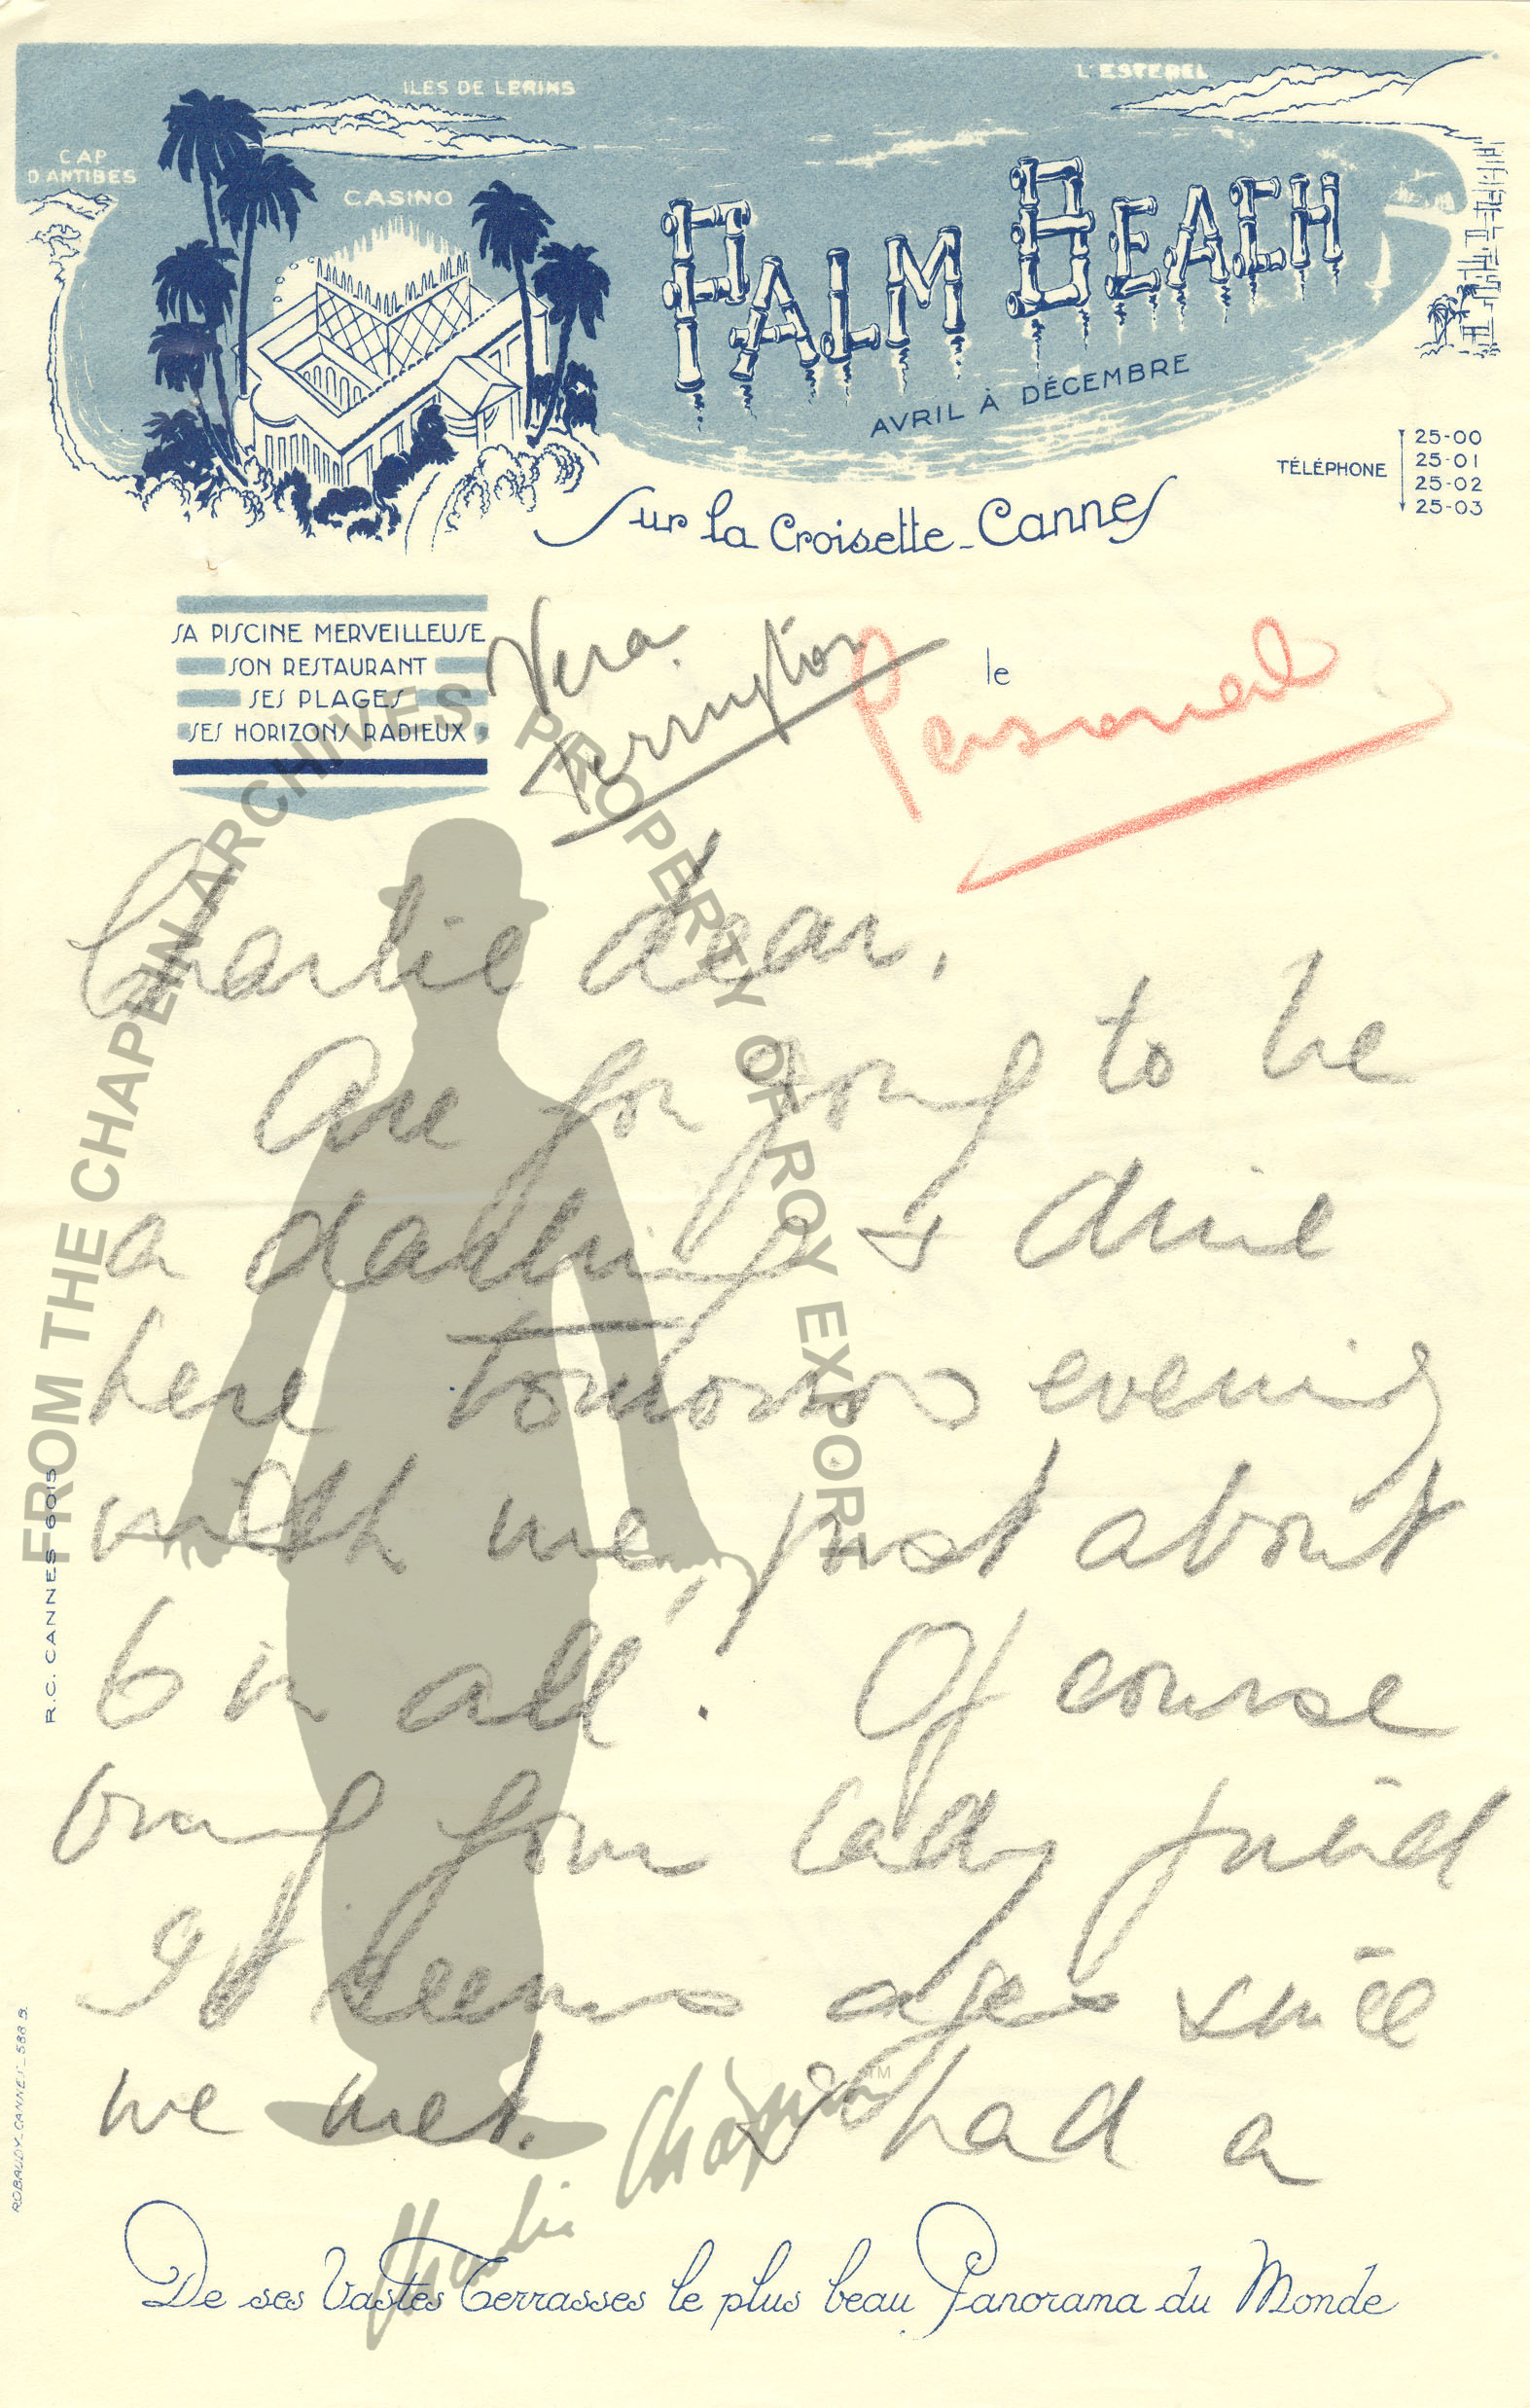 ILES DE LERINS
L'ESTEREL
CAP
D'ANTIBES
CASINO
PALM BEACH
AVRIL À DÉCEMBRE
TÉLÉPHONE
25-00
25-01
25-02
25-03
Sur la Croisette - Cannes
SA PISCINE MERVEILLEUSE
SON RESTAURANT
SES PLAGES
SES HORIZONS RADIEUX
Vera
le
Personal
Charlie dear,
Are you going to be
a dahling & dine
here tomorrow evening
with me, just about
6 in all. Of course
bring your lady friend
It seems ages since
we met. I had a
De ses Vastes Terrasses le plus beau Panorama du Monde
R.C. CANNES 6015
ROBAUDY-CANNES_588 B
FROM THE CHAPLIN ARCHIVES, PROPERTY OF ROY EXPORT
Charlie Chaplin™